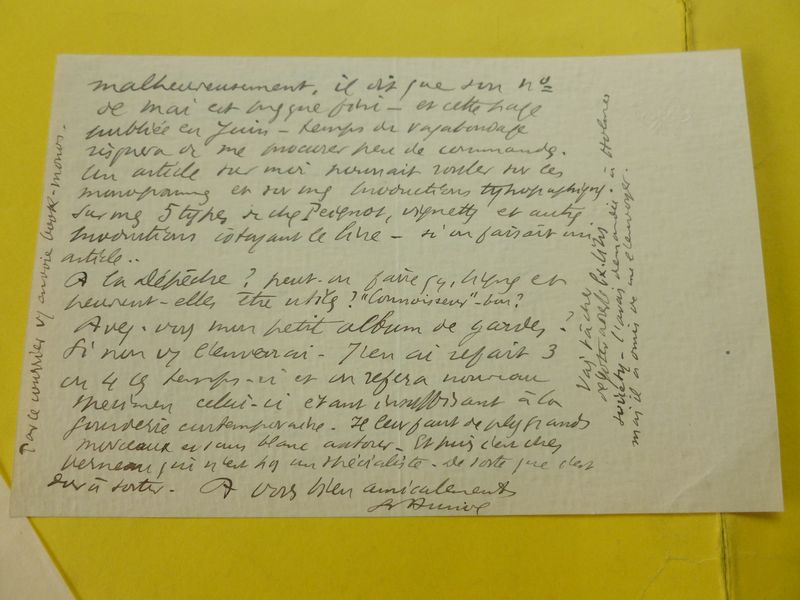 malheureusement, il dit que son nº
de mai est presque fini – et cette page
publiée en Juin – temps de vagabondage
risquera de me procurer peu de commandes.
Un article sur moi pourrait rouler sur ces
monogrammes et sur mes productions typographiques
Sur mes 5 types de chez Peignot, vignettes et autres
productions côtoyant le livre – si on faisait un
article..
A la dépêche ? peut-on faire ça, lignes et
peuvent-elles être utiles ? "Connoisseur" – bon ?
Avez-vous mon petit album de gardes ?
Si non vs l'enverrai – J'en ai refait 3
ou 4 ces temps-ci et on refera nouveau
specimen celui-ci étant insuffisant à la
contemporaine – Il leur faut de plus grands
morceaux et sans blanc autour – Et puis c'est chez
Verneau qui n'est pas un spécialiste – de sorte que c'est
dur à sortir – A vous bien amicalement
Par le courrier vs envoie book-monos.
Vais tâcher
society – l'avais demandé à Holmes
mais il a omis de me l'envoyer.